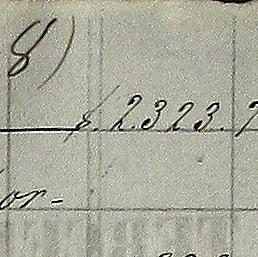 8)
$. 2323. 7
or-